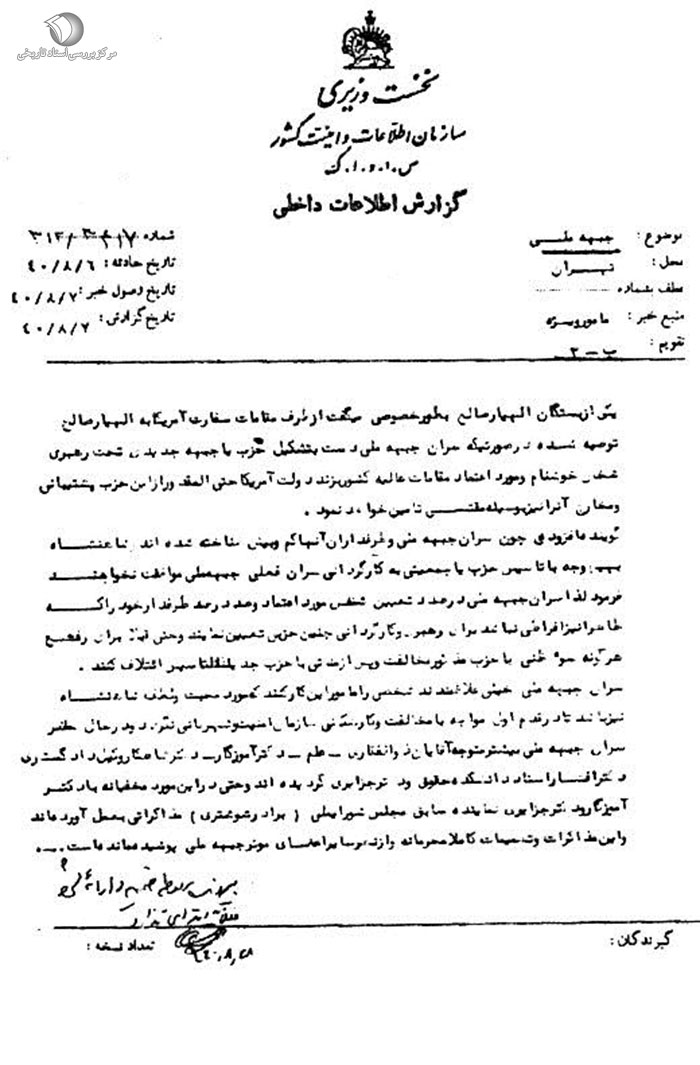 مرکز بررسی اسناد تاریخی
نخست وزیری
سازمان اطلاعات و امنیت کشور
س.ا.و.ا.ک
گزارش اطلاعات داخلی
موضوع: جبهه ملی
محل: تهران
عطف بشماره
منبع خبر: مامور ویژه
تقویم: ب-۲
شماره
تاریخ حادثه: ۴۰/۸/۶
تاریخ وصول خبر: ۴۰/۸/۷
تاریخ گزارش: ۴۰/۸/۷
یکی از بستگان الهیار صالح بطور خصوصی میگفت از طرف مقامات سفارت آمریکا به الهیار صالح
توصیه شده در صورتیکه سران جبهه ملی دست بتشکیل حزب یا جبهه جدیدی تحت رهبری
شخص خوشنام و مورد اعتماد مقامات عالیه کشور بزند دولت آمریکا حتی المقدور از این حزب پشتیبانی
و مخارج آنرا نیز بوسیله مقتضی تامین خواهد نمود.
گوینده افزود چون سران جبهه ملی و طرفداران آنها کم و بیش شناخته شده اند شاهنشاه
بهیچوجه با تاسیس حزب یا جمعیتی به کارگردانی سران فعلی جبهه ملی موافقت نخواهند
فرمود لذا سران جبهه ملی درصدد تعیین شخص مورد اعتماد و صد در صد طرفدار خود را که
ظاهرا نیز افراطی نباشد برای رهبری و کارگردانی چنین حزبی تعیین نمایند و حتی قبلا برای رفع
هرگونه سوء ظنی با حزب مذکور مخالفت و پس از مدتی با حزب جدید التاسیس ائتلاف کنند.
سران جبهه ملی خیلی علاقمندند شخصی را مامور این کار کنند که مورد محبت و لطف شاهنشاه
نیز باشد تا در قدم اول مواجه با مخالفت و کارشکنی سازمان امنیت و شهربانی نگردد و در حال حاضر
سران جبهه ملی بیشتر متوجه آقایان ذوالفقاری - علم - دکتر آموزگار - دکتر
دکتر افشار استاد دانشکده حقوق و دکتر جزایری گردیده اند و حتی در این مورد مخفیانه با دکتر
آموزگار و دکتر جزایری نماینده سابق مجلس شورایملی (برادر شوشتری) مذاکراتی بعمل آورده اند
و این مذاکرات و تصمیمات کاملا محرمانه و از نظر سایر اعضای موثر جبهه ملی پوشیده مانده است....
۴۰/۸/۲۸
گیرندگان:
تعداد نسخه: